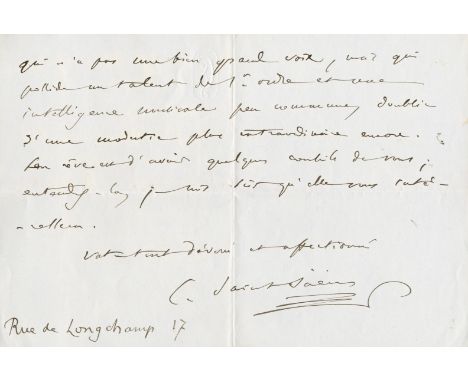 qui n'a pas une bien grand voix, mais qui
possède un talent de 1er ordre et une
intelligence musicale peu commune, doublée
d'une modestie plus extraordinaire encore.
Son rêve est d'avoir quelques conseils de vous ;
entendez-la, je suis sûr qu'elle vous inté-
-ressera.
votre tout dévoué et affectionné
C. Saint-Saëns
Rue de Longchamp 17